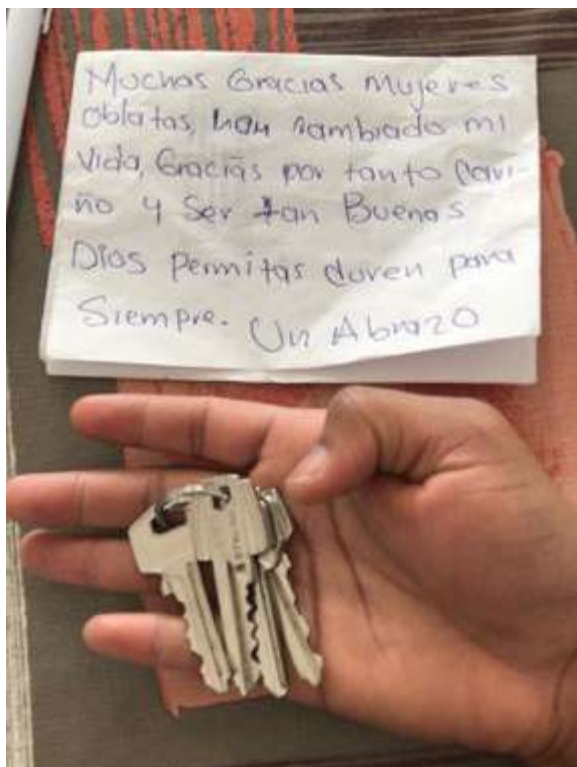 Muchas Gracias Mujeres
Oblatas, han cambiado mi
Vida, Gracias por tanto Cari-
ño y Ser tan Buenas
Dios permitas duren para
Siempre. Un Abrazo